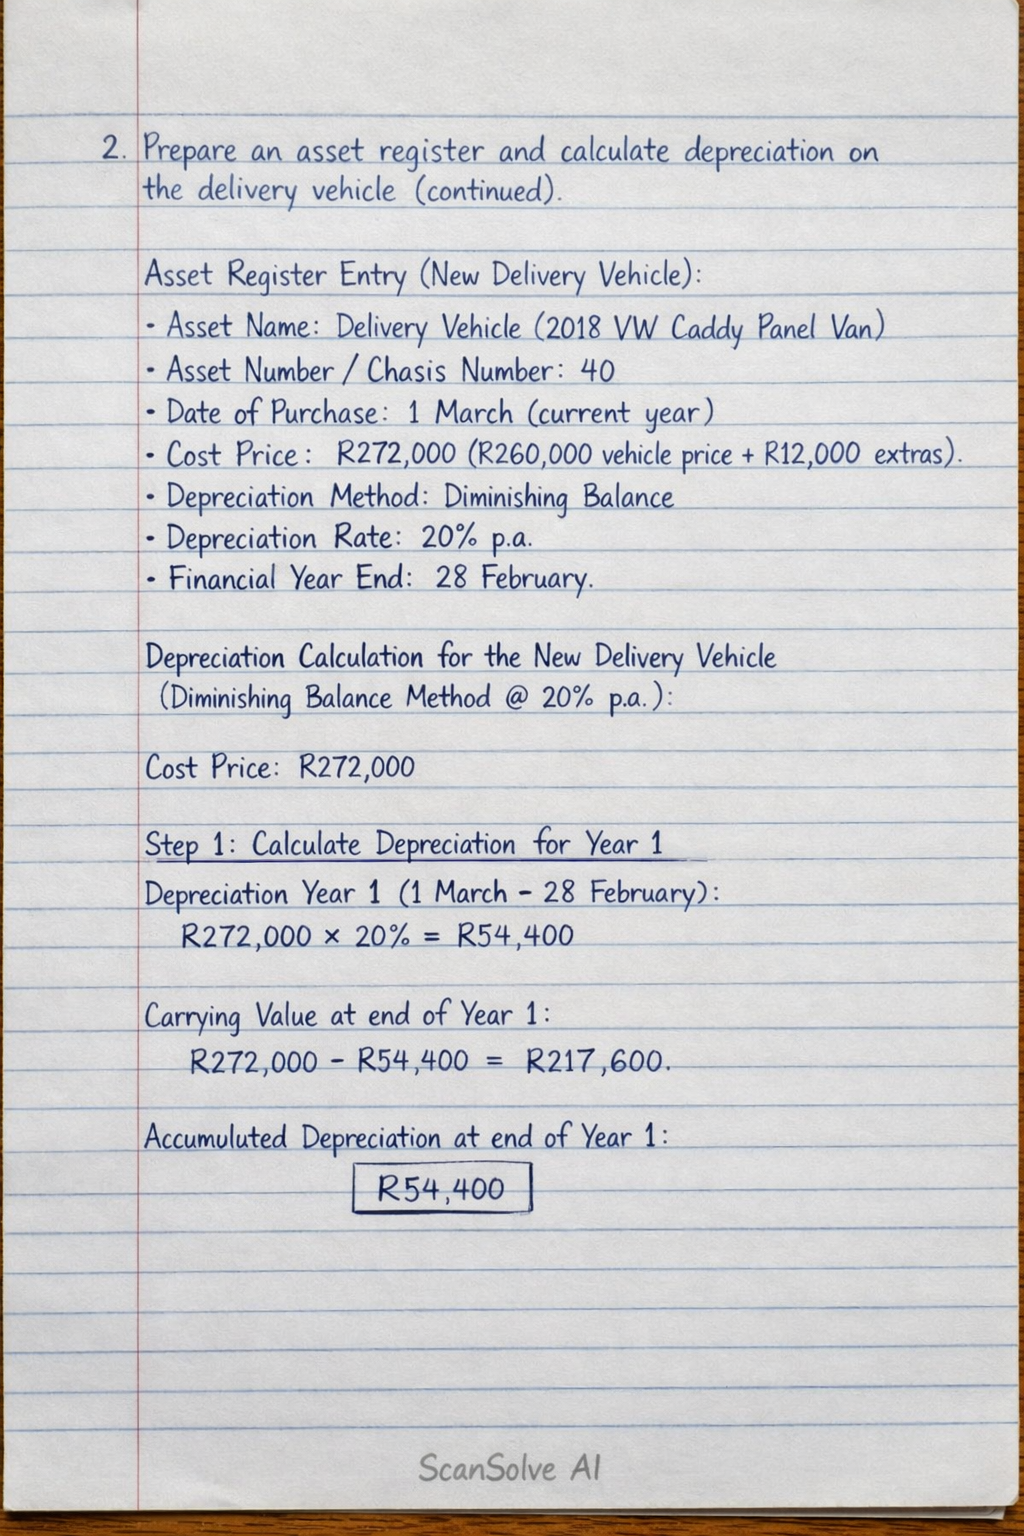 2. Prepare an asset register and calculate depreciation on
the delivery vehicle (continued).
Asset Register Entry (New Delivery Vehicle):
• Asset Name: Delivery Vehicle (2018 VW Caddy Panel Van)
• Asset Number / Chasis Number: 40
• Date of Purchase: 1 March (current year)
• Cost Price: R272,000 (R260,000 vehicle price + R12,000 extras).
• Depreciation Method: Diminishing Balance
• Depreciation Rate: 20% p.a.
• Financial Year End: 28 February.
Depreciation Calculation for the New Delivery Vehicle
(Diminishing Balance Method @ 20% p.a.):
Cost Price: R272,000
Step 1: Calculate Depreciation for Year 1
Depreciation Year 1 (1 March – 28 February):
R272,000 × 20% = R54,400
Carrying Value at end of Year 1:
R272,000 – R54,400 = R217,600.
Accumuluted Depreciation at end of Year 1:
R54,400
ScanSolve AI